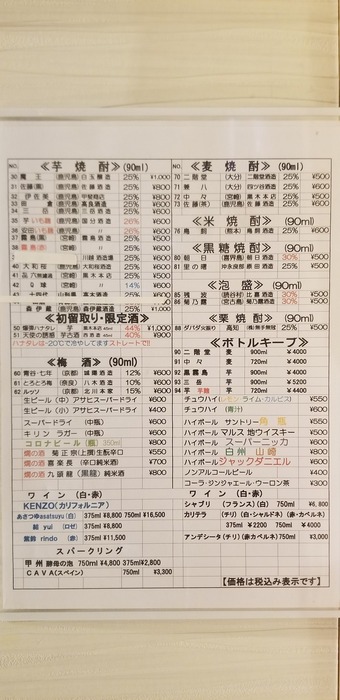 NO. ≪芋 焼 酎≫(90ml)
30 魔 王 (鹿児島) 白玉醸造 25% ¥1,000
31 佐藤(黒) (鹿児島) 佐藤酒造 25% ¥800
32 伊佐美 (鹿児島) 甲斐商店 25% ¥800
(鹿児島) 25% ¥600
34 三 岳 (鹿児島) 三岳酒造 25% ¥600
35 芋 いも麹 (鹿児島) 国分酒造 26% ¥600
36 安田 いも麹 (鹿児島) 26% ¥600
37 霧島(黒) (宮崎) 霧島酒造 25% ¥500
(宮崎) 25% ¥500
川越酒造場 25%
40 大和桜 (鹿児島) 大和桜酒造 25% ¥600
(宮崎) 黒木本店 25% ¥600
(宮崎) 14% ¥600
25% ¥600
森伊蔵 (鹿児島) 森伊蔵酒造 25% ¥1,000
≪初留取り・限定酒≫
50 爆弾ハナタレ 芋 黒木本店 44% ¥1,000
51 天使の誘惑 芋 古酒 40% ¥900
ハナタレは-20℃で冷やしてますストレートで!!
≪梅 酒≫(90ml)
60 (京都) 城陽酒造 12% ¥600
61 とろとろ梅 (奈良) 八木酒造 10% ¥600
62 ルッソ (京都) 北川本家 15% ¥600
生ビール(中)アサヒスーパードライ ¥600
生ビール(小)アサヒスーパードライ ¥400
スーパードライ (中瓶) ¥600
キリン ラガー (中瓶) ¥600
コロナビール(瓶)350ml ¥800
燗の酒 菊正宗(上撰)生酛辛口 ¥550
燗の酒 喜楽長 (辛口純米酒) ¥700
燗の酒 九頭龍 (黒龍)純米酒 ¥800
ワイン (白・赤)
KENZO(カリフォルニア)
あさつゆasatsuyu (白) 375ml ¥8,800 750ml ¥16,500
結 yui (ロゼ) 375ml ¥8,800
紫鈴 rindo (赤) 375ml ¥11,500
スパークリング
甲州 酵母の泡 750ml ¥4,800 375ml ¥2,800
CAVA(スペイン) 750ml ¥3,300
NO. ≪麦 焼 酎≫ (90ml)
70 二階堂 (大分) 二階堂酒造 25% ¥500
71 兼 八 (大分) 四ツ谷酒造 25% ¥500
72 中々 (宮崎) 黒木本店 25% ¥500
73 佐藤(麦) (鹿児島) 佐藤酒造 25% ¥600
≪米 焼 酎≫ (90ml)
76 鳥飼 (熊本) 鳥飼酒造 25% ¥500
≪黒糖焼酎≫ (90ml)
80 朝 日 (喜界島) 朝日酒造 30% ¥500
81 里の曙 (奄美) 25% ¥500
≪泡 盛≫ (90ml)
85 残 波 (読谷村) 比嘉酒造 30% ¥500
86 菊乃露 (宮古島) 菊乃露酒造 30% ¥500
≪栗 焼 酎≫ (90ml)
88 ダバダ火振り 高知 (株)無手無冠 25% ¥500
≪ボトルキープ≫
90 二階堂 麦 900ml ¥4000
91 中々 麦 720ml ¥4000
92 黒霧島 芋 900ml ¥4000
93 三岳 芋 900ml ¥5200
94 芋 芋麹 芋 720ml ¥4000
チュウハイ(レモン・ライム・カルピス) ¥550
チュウハイ (青汁) ¥600
ハイボール サントリー角瓶 ¥550
ハイボール マルス 地ウイスキー ¥500
ハイボール スーパーニッカ ¥600
ハイボール 白州 山崎 ¥800
ハイボール ジャックダニエル ¥600
ノンアルコールビール ¥400
コーラ・ジンジャエール・ウーロン茶 ¥300
ワイン (白・赤)
シャブリ (フランス)(白) 750ml ¥6,800
カリテラ (チリ)(白・シャルドネ) (赤・カベルネ)
375ml ¥2200 750ml ¥4000
アンデシータ(チリ)(赤カベルネ)750ml ¥3,000
【価格は税込み表示です】